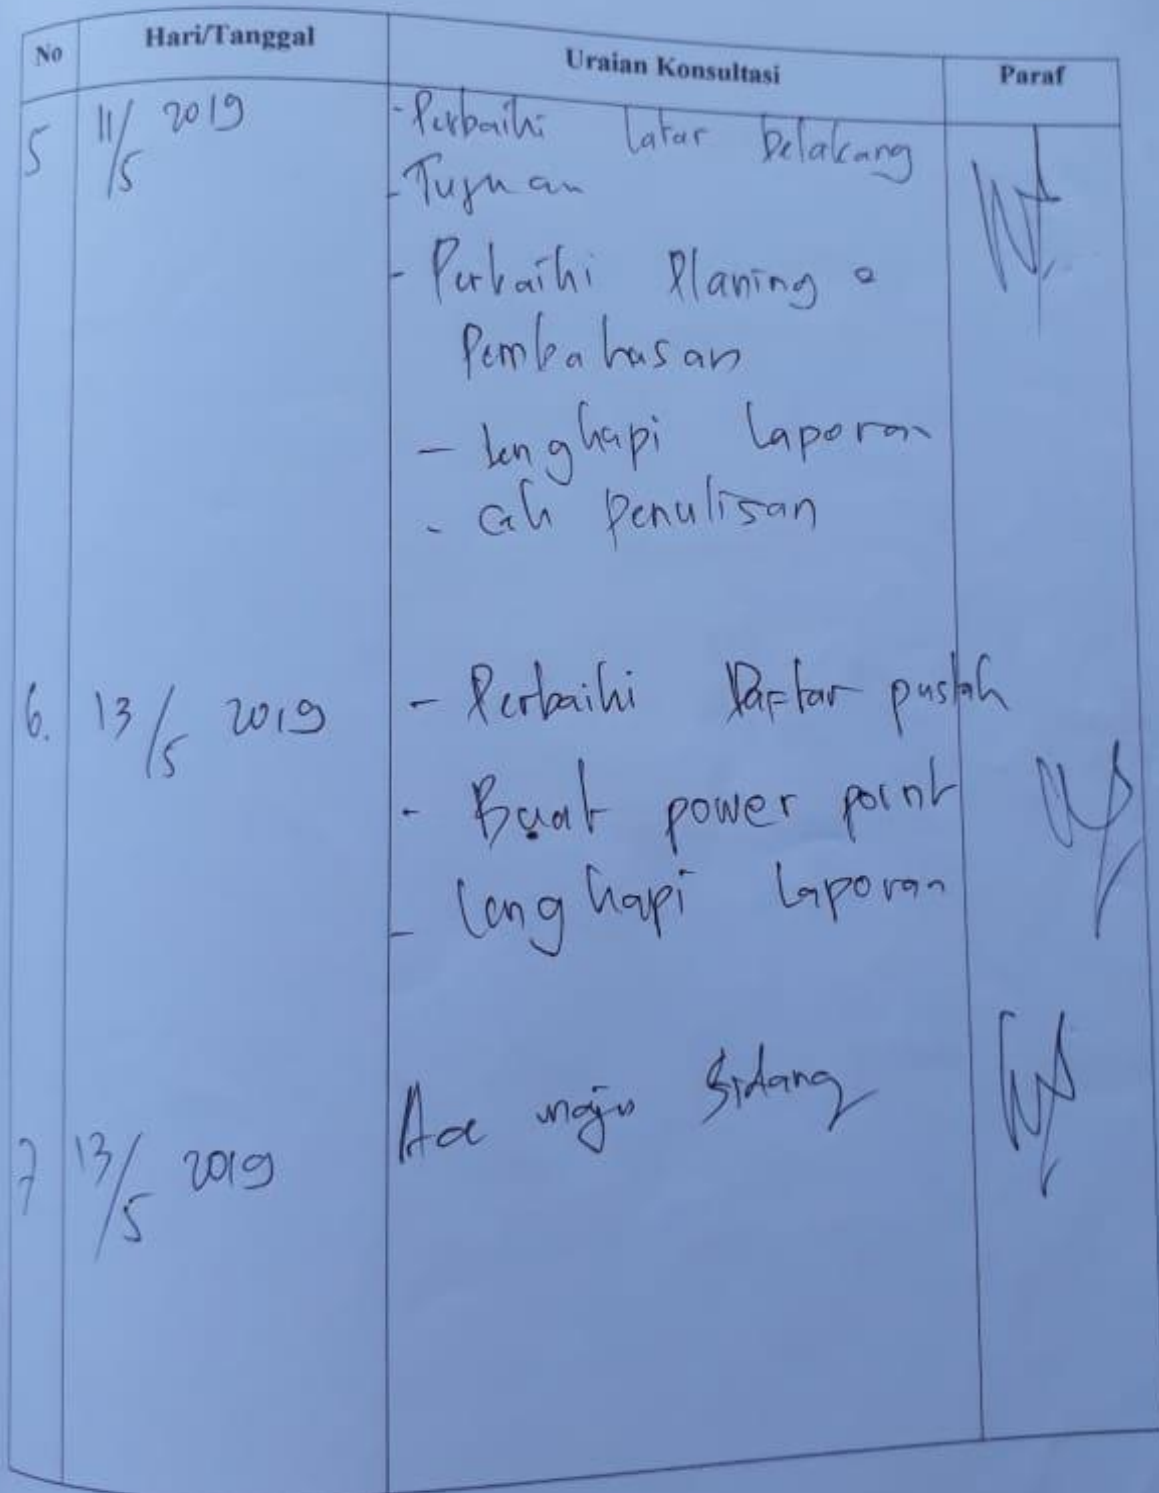 No Hari/Tanggal Uraian Konsultasi Paraf
5 11/5 2019 - Perbaiki latar belakang
- Tujuan
- Perbaiki Planing
Pembahasan
- lengkapi laporan
- penulisan
6. 13/5 2019 - Perbaiki Daftar pustak
- Buat power point
- lengkapi laporan
7 13/5 2019 Acc maju Sidang